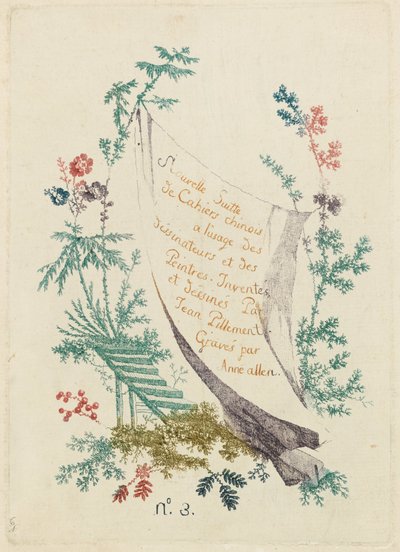 Nouvelle Suitte
de Cahiers chinois
a l'usage des
dessinateurs et des
Peintres. Inventés
et dessinés Par
Jean Pillement
Gravés par
Anne allen.
nº. 3.